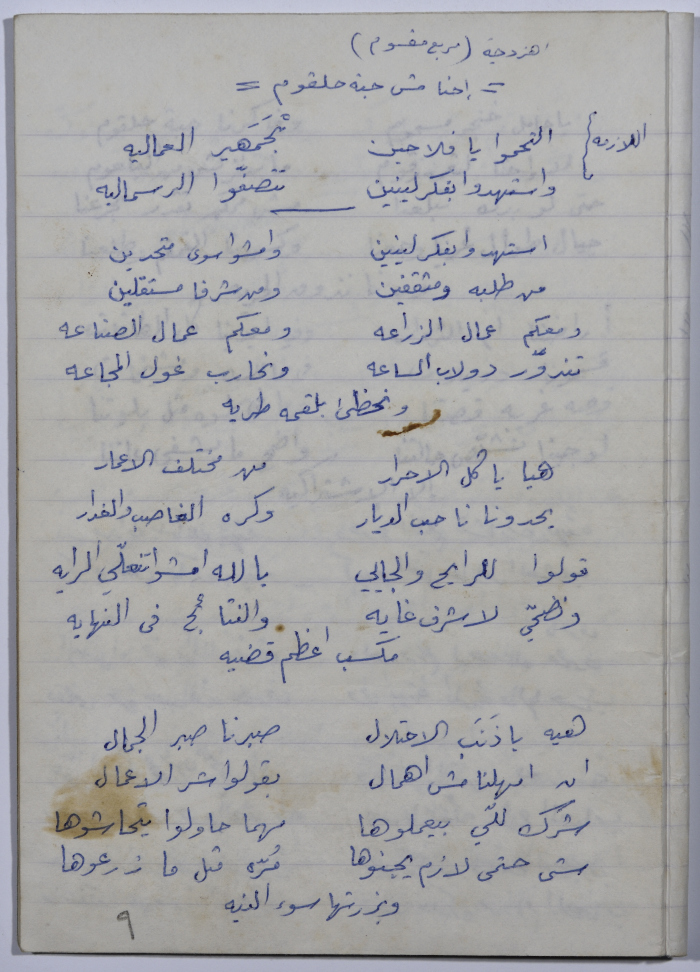 اهزوجة (مربع مقسوم)
= إحنا مش حبة حلقوم =
اللازمه { التحموا يا فلاحين تجمَهير العماليه
واستهدوا بفكر لينين تتصفّوا الرسماليه
استهدوا بفكر لينين وامشوا سوى متحدين
من طلبه ومثقفين ومن شرفا مستقلين
ومعكم عمال الزراعه ومعكم عمال الصناعه
تندوّر دولاب الساعه ونحارب غول المجاعه
ونحظى بلقمه طريه
هيا يا كل الاحرار من مختلف الاعمار
يحدونا حب الديار وكره الغاصب والغدار
قولوا للرايح والجايي يا الله امشوا تنعلّي الرايه
ونضحّي لاشرف غايه والنتائج في النهايه
مكسب اعظم قضيه
هيه يا ذَنَب الاحتلال صبرنا صبر الجمال
ان امهلنا مش اهمال بقولوا شر الاعمال
شرك للّي بيعملوها مهما حاولوا يتحاشوها
شي حتمي لازم يجنوها مُرّه مثل ما زرعوها
وبزرتها سوء النيه
٩